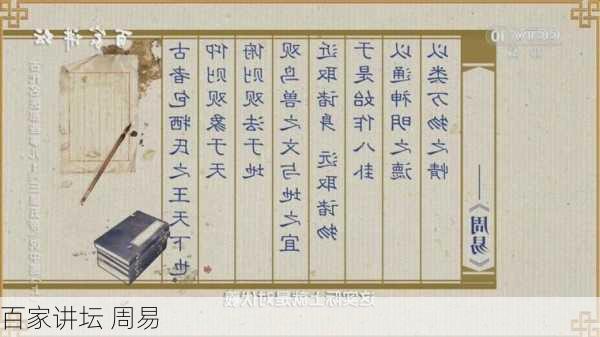 百家讲坛
10
古者包牺氏之王天下也
仰则观象于天
俯则观法于地
观鸟兽之文与地之宜
近取诸身 远取诸物
于是始作八卦
以通神明之德
以类万物之情
——《周易》
这实际上就是对伏羲
百家讲坛 周易